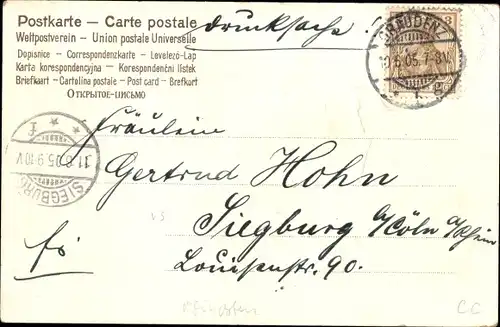 Postkarte — Carte postale
Weltpostverein — Union postale Universelle
Dopisnice - Correspondenzkarte - Levelező-Lap
Karta korespondencyjna — Korespondenční lístek
Briefkart - Cartolina postale - Post card - Brefkort
Открытое-письмо
Drucksache!
GRAUDENZ
10.6.05.7-8V.
3
SIEGBURG
11.6.05.9-10V
Fräulein
Gertrud Hohn
Siegburg a/Cöln a/Rhein
fr.
Louisenstr. 90.
CC